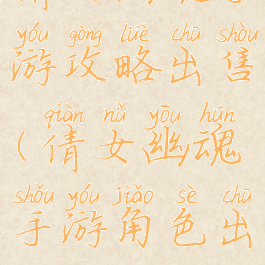 yóu gōng lüè chū shòu
游攻略出售
qiàn nǚ yōu hún
(倩女幽魂
shǒu yóu jiǎo sè chū
手游角色出